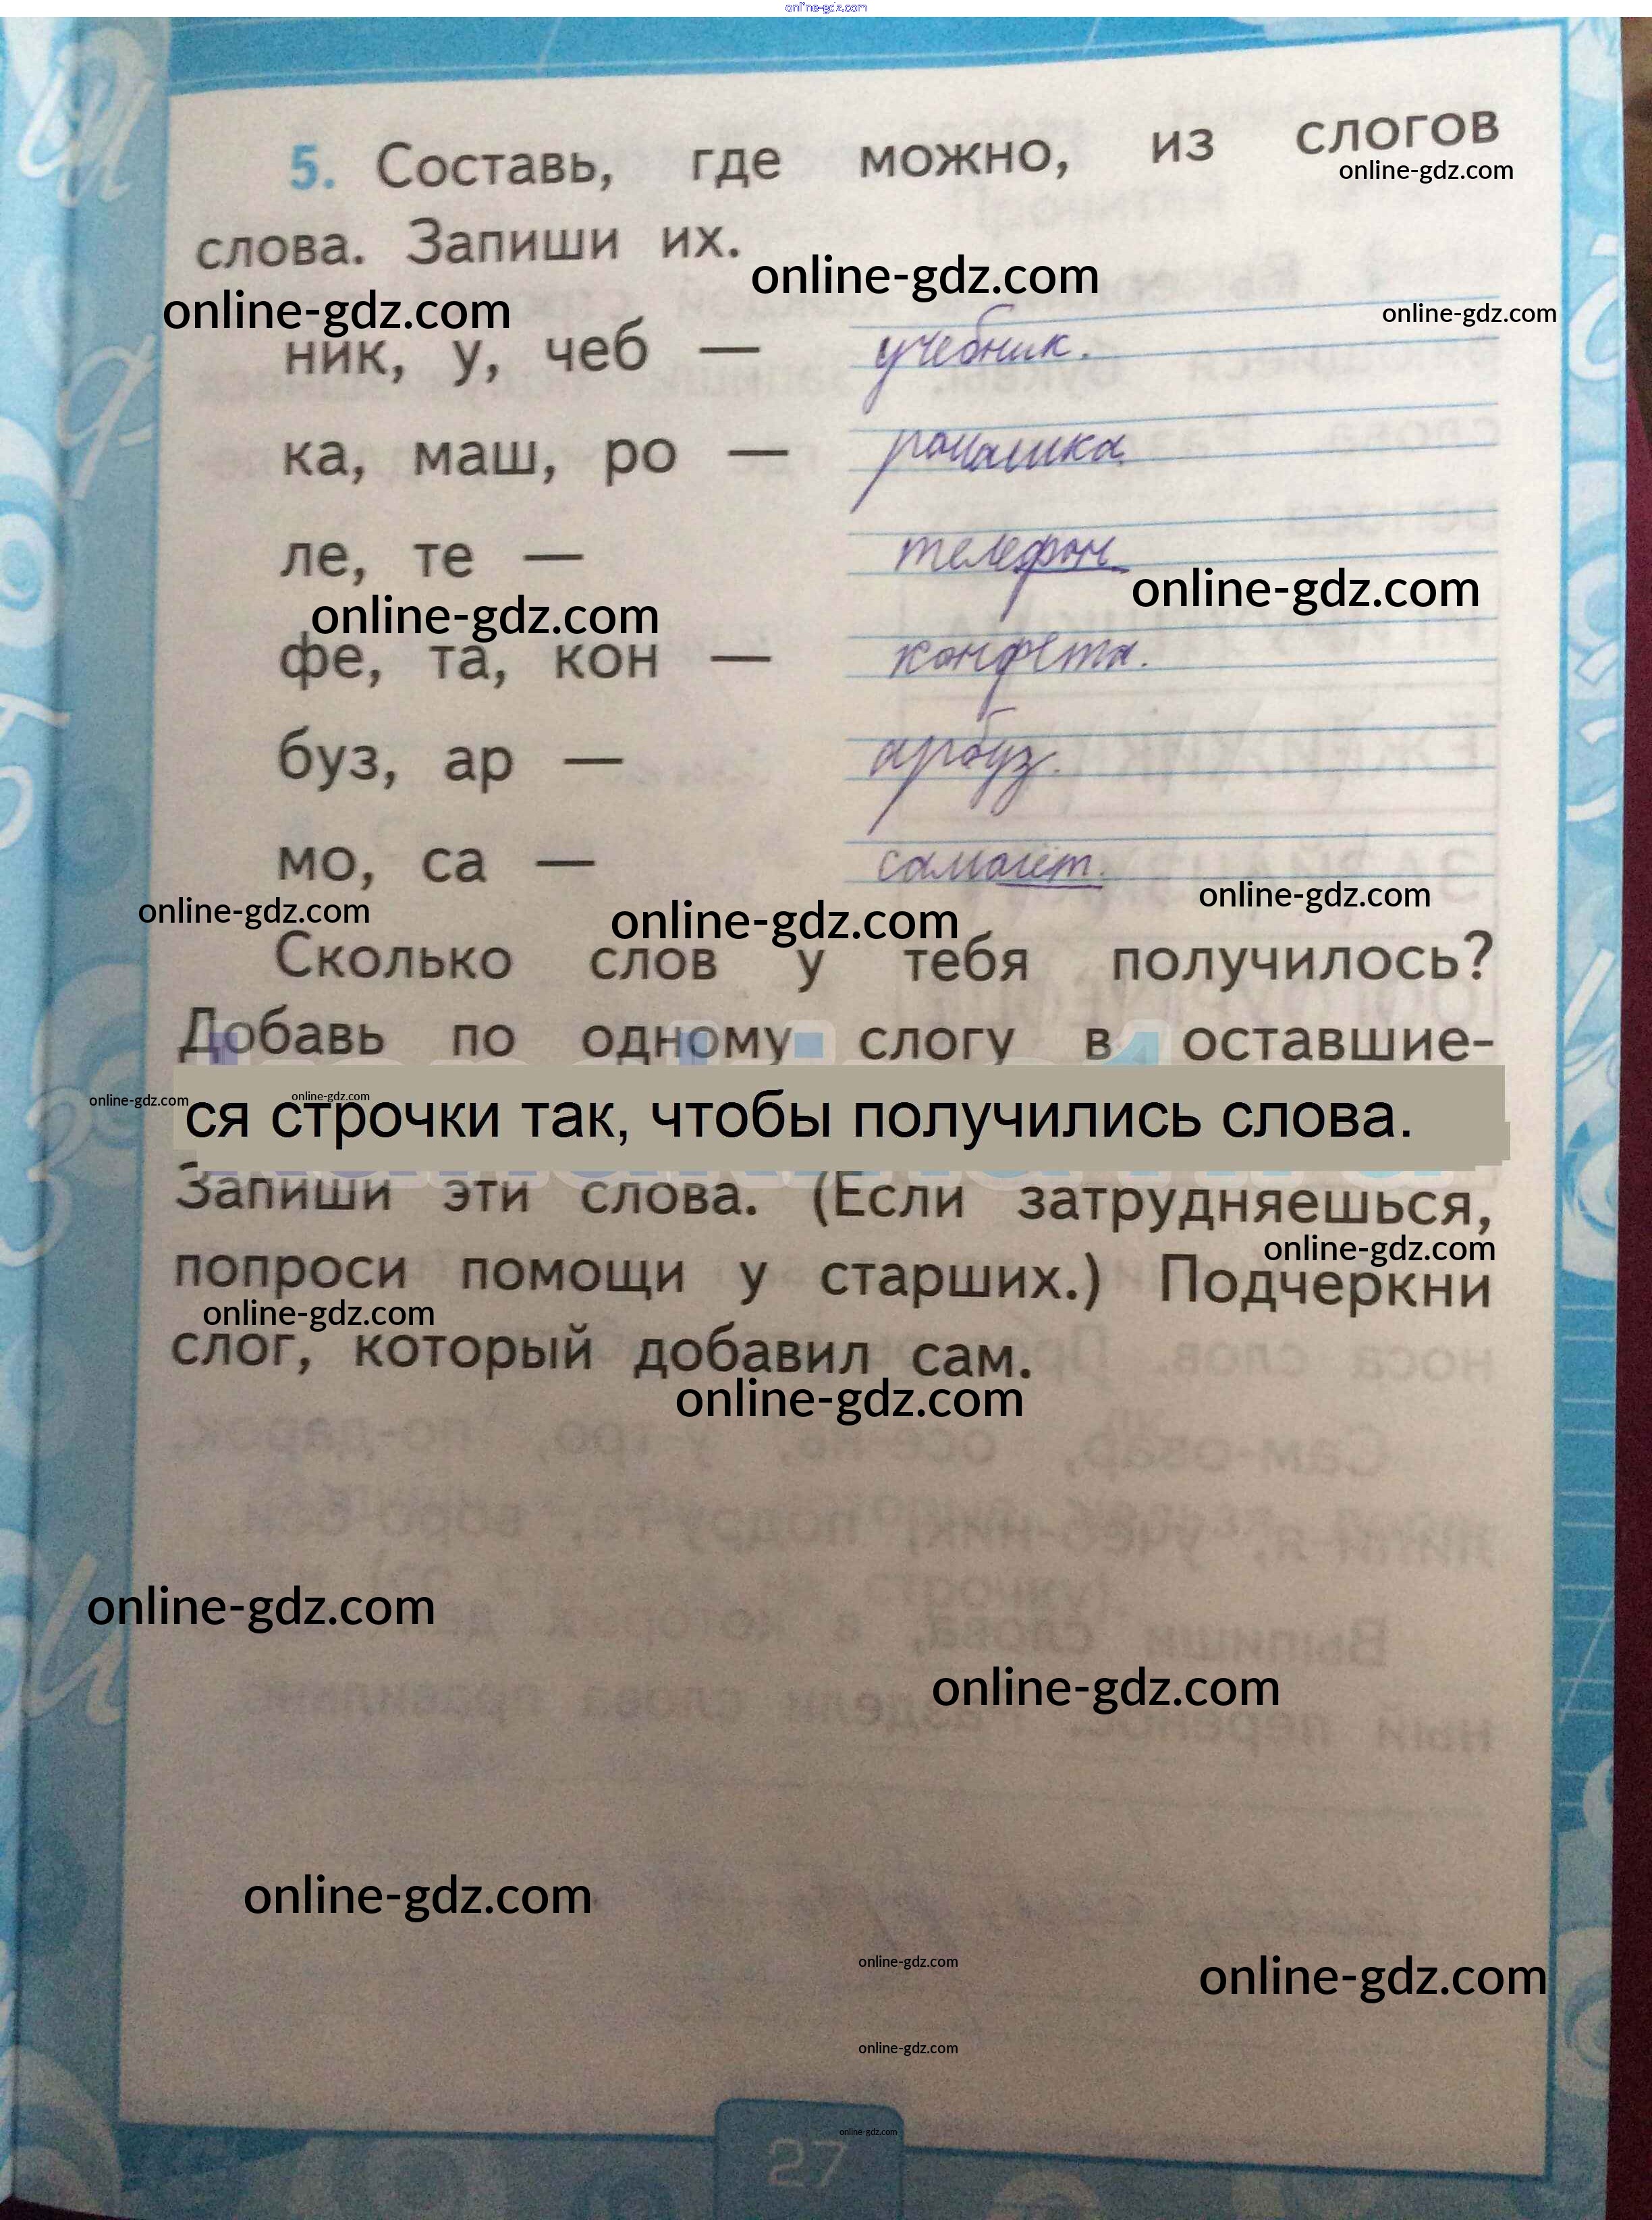 online-gdz.com
5. Составь, где можно, из слогов
online-gdz.com
слова. Запиши их.
online-gdz.com
online-gdz.com
online-gdz.com
ник, у, чеб — учебник.
ка, маш, ро — ромашка.
ле, те — телефон.
online-gdz.com
online-gdz.com
фе, та, кон — конфета.
буз, ар — арбуз.
мо, са — самолёт.
online-gdz.com
online-gdz.com
online-gdz.com
Сколько слов у тебя получилось?
Добавь по одному слогу в оставшие-
online-gdz.com
online-gdz.com
ся строчки так, чтобы получились слова.
Запиши эти слова. (Если затрудняешься,
online-gdz.com
попроси помощи у старших.) Подчеркни
online-gdz.com
слог, который добавил сам.
online-gdz.com
online-gdz.com
online-gdz.com
online-gdz.com
online-gdz.com
online-gdz.com
online-gdz.com
online-gdz.com
27